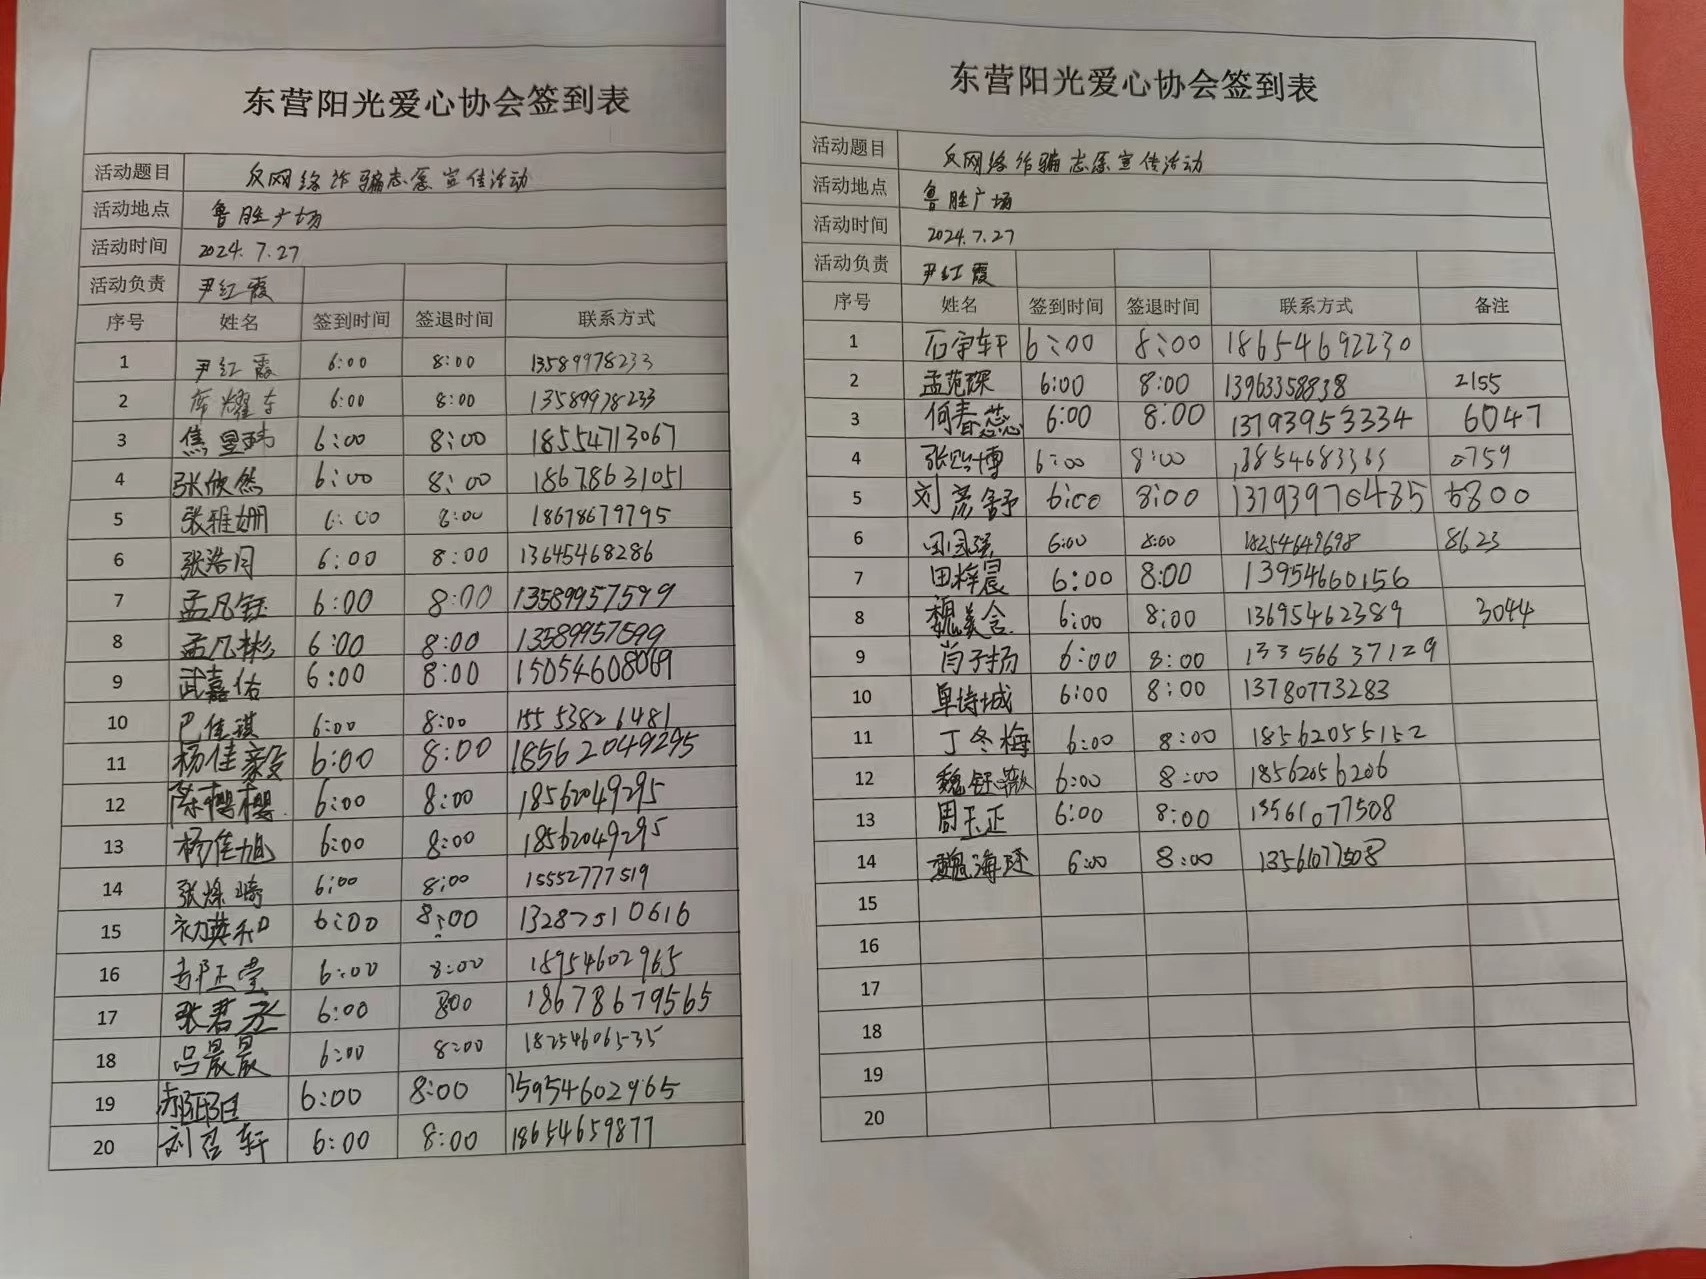 东营阳光爱心协会签到表
活动题目 反网络诈骗志愿宣传活动
活动地点 鲁胜广场
活动时间 2024.7.27
活动负责 尹红霞
序号 姓名 签到时间 签退时间 联系方式
1 尹红霞 6:00 8:00 13589978233
2 席耀东 6:00 8:00 13589978233
3 焦昱玮 6:00 8:00 18554713067
4 张欣然 6:00 8:00 18678631051
5 张雅姗 6:00 8:00 18678679795
6 张浩月 6:00 8:00 13645468286
7 孟凡钰 6:00 8:00 13589957599
8 孟凡彬 6:00 8:00 13589957599
9 武嘉佑 6:00 8:00 15054608069
10 巴佳琪 6:00 8:00 15553826481
11 杨佳毅 6:00 8:00 18562049295
12 陈樱樱 6:00 8:00 18562049295
13 杨佳旭 6:00 8:00 18562049295
14 张烁崎 6:00 8:00 15552777519
15 初英和 6:00 8:00 13287510616
16 6:00 8:00 15954602965
17 张君丞 6:00 800 18678679565
18 吕晨晟 6:00 8:00 18254606535
19 6:00 8:00 15954602965
20 刘召轩 6:00 8:00 18654659877
东营阳光爱心协会签到表
活动题目 反网络诈骗志愿宣传活动
活动地点 鲁胜广场
活动时间 2024.7.27
活动负责 尹红霞
序号 姓名 签到时间 签退时间 联系方式 备注
1 石宇轩 6:00 8:00 18654692230
2 孟范琛 6:00 8:00 13963358838 2155
3 何春蕊 6:00 8:00 13793953334 6047
4 6:00 8:00 0759
5 刘彦舒 6:00 8:00 13793970485 5800
6 田国强 6:00 8:00 18254649698 8623
7 田梓宸 6:00 8:00 13954660156
8 魏美含 6:00 8:00 13695462389 3044
9 肖子扬 6:00 8:00 13356637129
10 单诗城 6:00 8:00 13780773283
11 丁冬梅 6:00 8:00 18562055152
12 魏钰璇 6:00 8:00 18562056206
13 周玉正 6:00 8:00 13561077508
14 魏海廷 6:00 8:00 13561077508
15
16
17
18
19
20